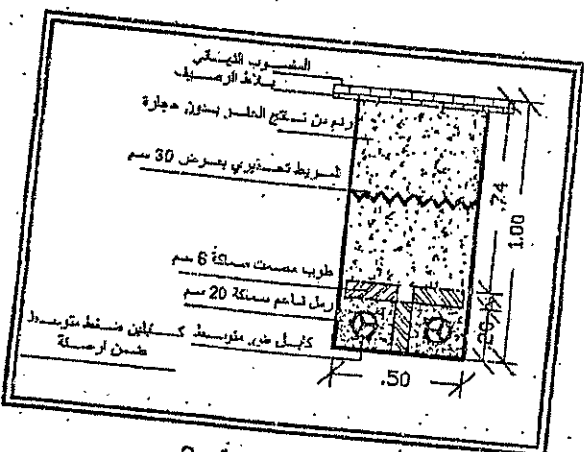 المنسوب النهائي
بلاط الرصيف
ردم من ناتج الحفر بدون حجارة
شريط تحذيري بعرض 30 سم
طوب مصمت سماكة 6 سم
رمل ناعم سمكة 20 سم
كابلين ضغط متوسط
ضمن ارصفة
كيبل جهد متوسط
.74
1.00
.20
.50